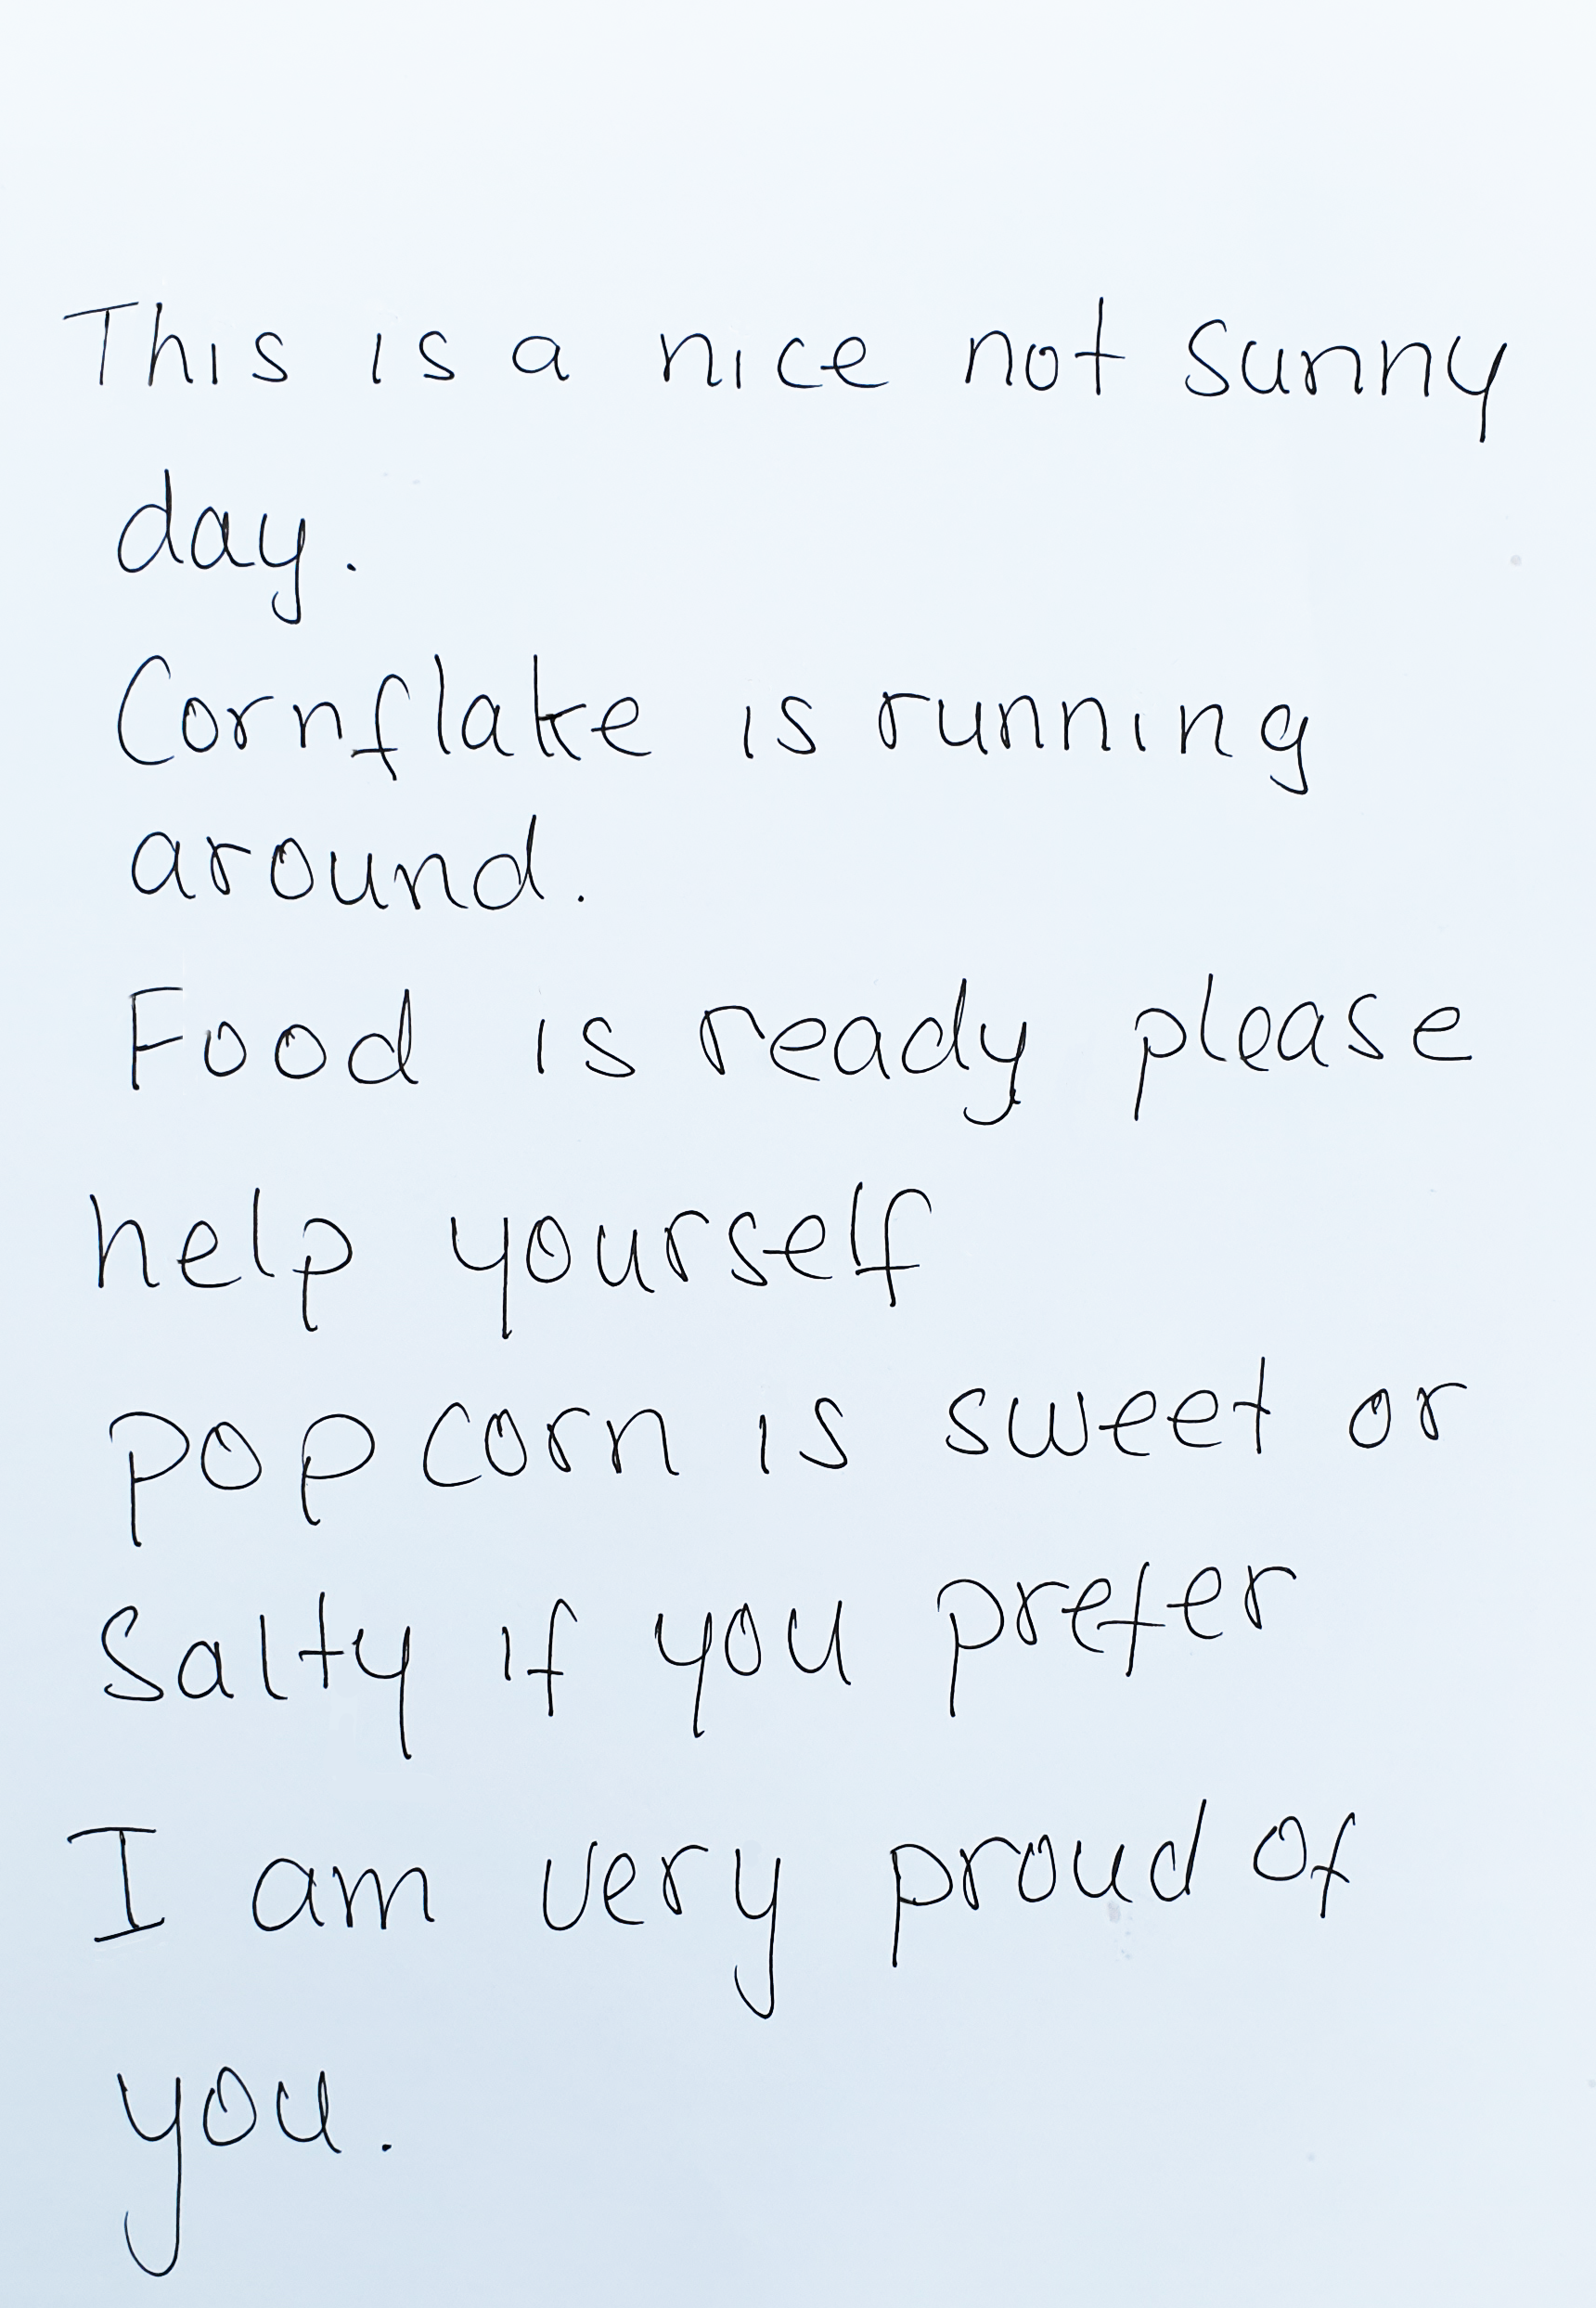 This is a nice not sunny
day.
Cornflake is running
around.
Food is ready please
help yourself
popcorn is sweet or
Salty if you prefer
I am very proud of
you.